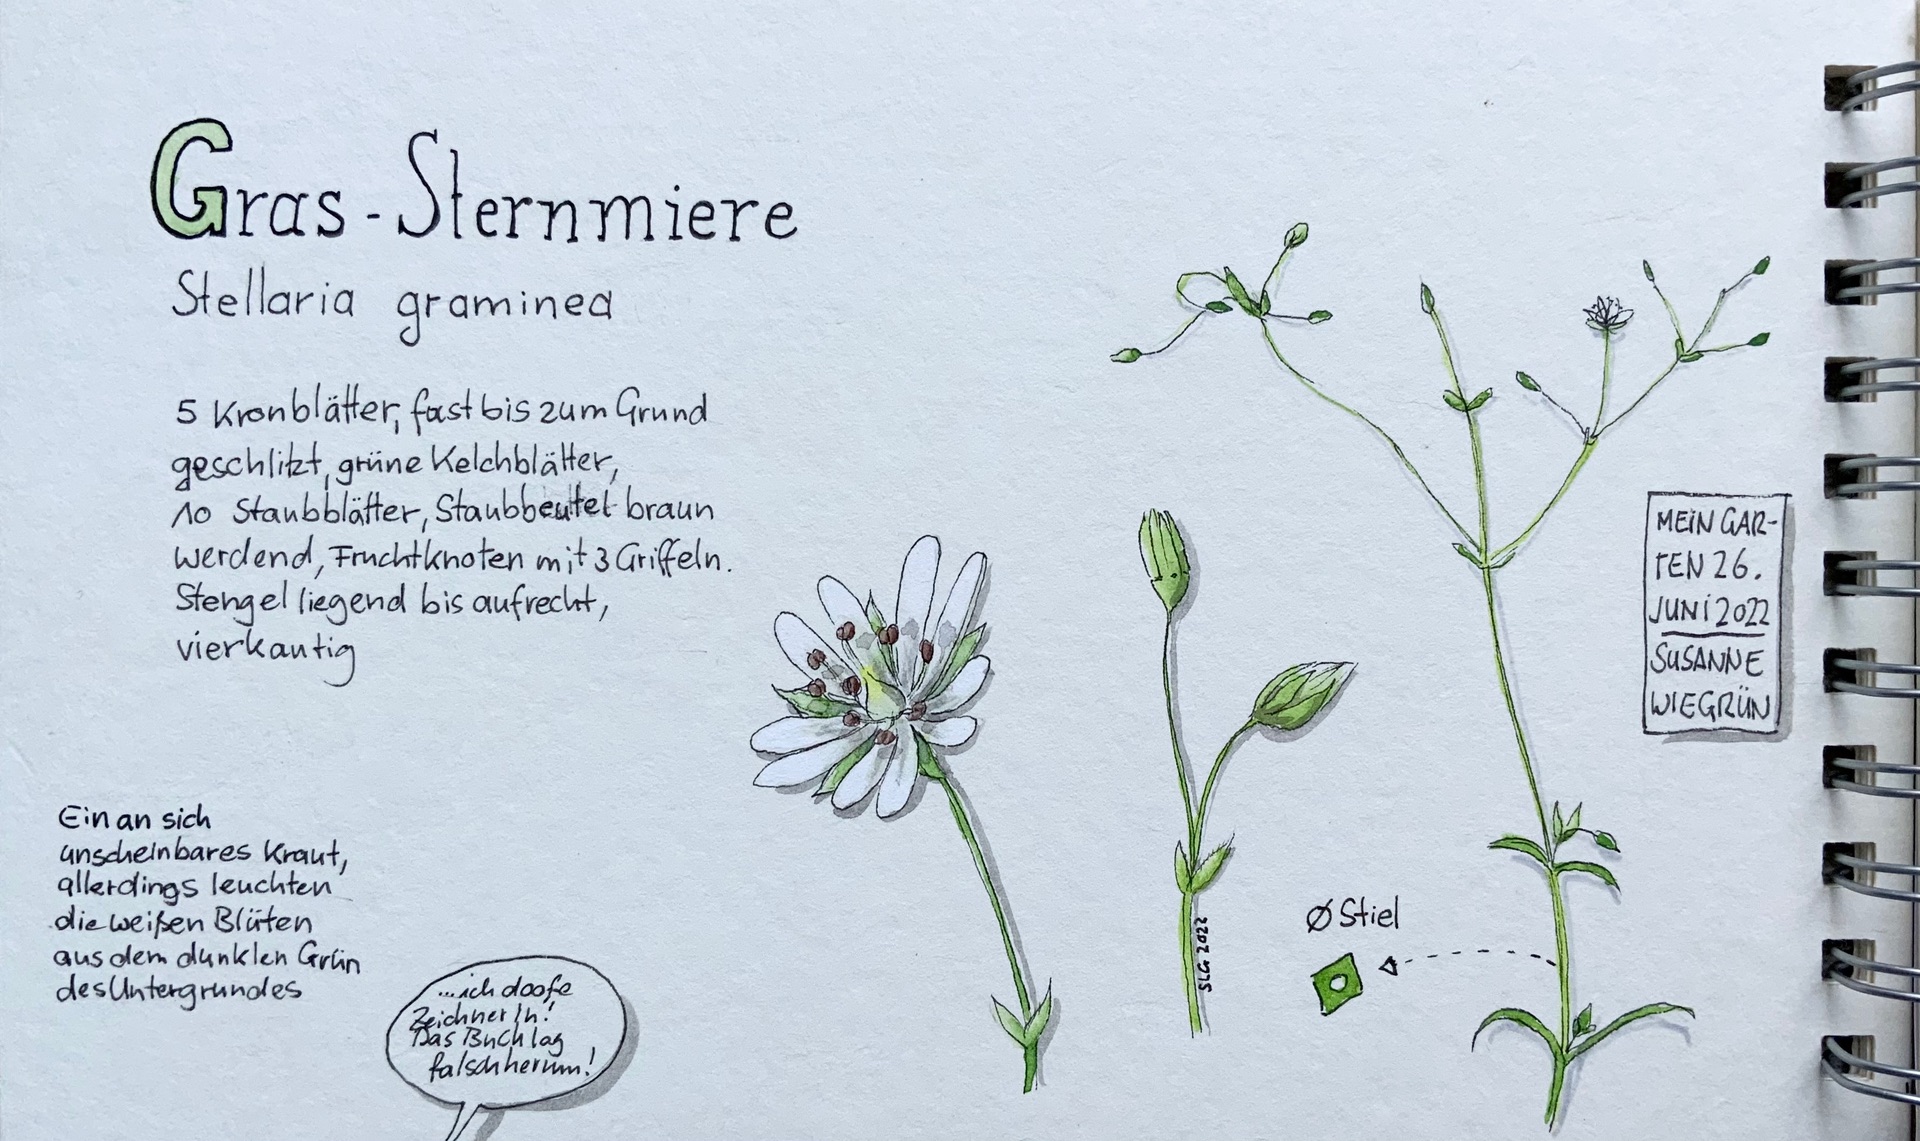 Gras-Sternmiere
Stellaria graminea
5 Kronblätter, fast bis zum Grund
geschlitzt, grüne Kelchblätter,
10 Staubblätter, Staubbeutel braun
werdend, Fruchtknoten mit 3 Griffeln.
Stengel liegend bis aufrecht,
vierkantig
Ein an sich
unscheinbares Kraut,
allerdings leuchten
die weißen Blüten
aus dem dunklen Grün
des Untergrundes
...ich doofe
Zeichnerin!
Das Buch lag
falschherum!
SLG 2022
Ø Stiel
MEIN GAR-
TEN 26.
JUNI 2022
SUSANNE
WIEGRÜN